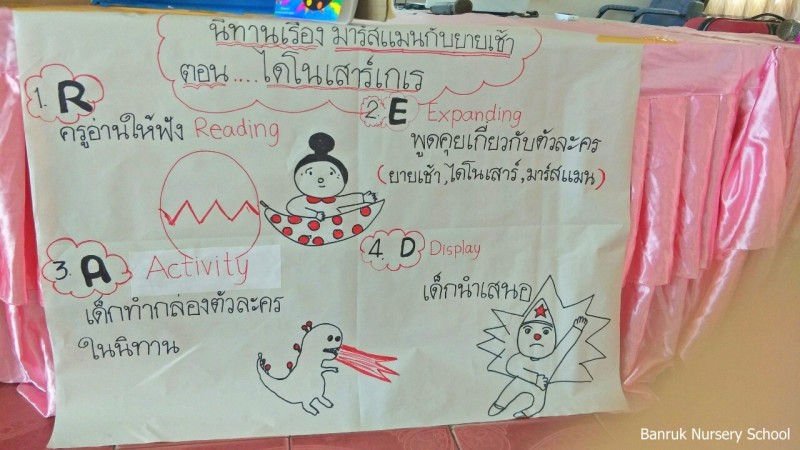 นิทานเรื่อง มาร์สแมนกับยายเช้า
ตอน....ไดโนเสาร์เกเร
1. R
ครูอ่านให้ฟัง Reading
2. E Expanding
พูดคุยเกี่ยวกับตัวละคร
(ยายเช้า,ไดโนเสาร์,มาร์สแมน)
3. A Activity
เด็กทำกล่องตัวละคร
ในนิทาน
4. D Display
เด็กนำเสนอ
Banruk Nursery School